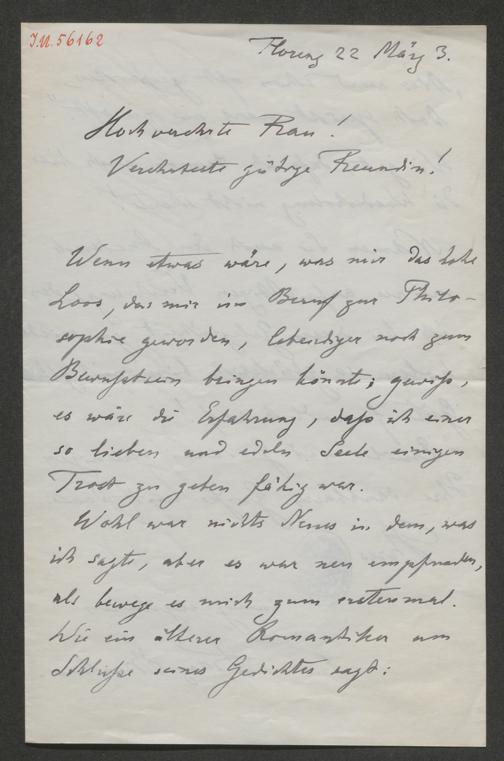 J.N. 56162
Florenz 22 März 3.
Hochverehrte Frau!
Verehrteste gütige Freundin!
Wenn etwas wäre, was mir das hohe
Loos, das mir im Beruf zur Philo-
sophie geworden, lebendiger noch zum
Bewußtsein bringen könnte; gewiß,
es wäre die Erfahrung, daß ich einer
so lieben und edeln Seele einigen
Trost zu geben fähig war.
Wohl war nichts Neues in dem, was
ich sagte, aber es war neu empfunden,
als bewege es mich zum erstenmal.
Wie ein älterer Romantiker am
Schluße seines Gedichtes sagt: